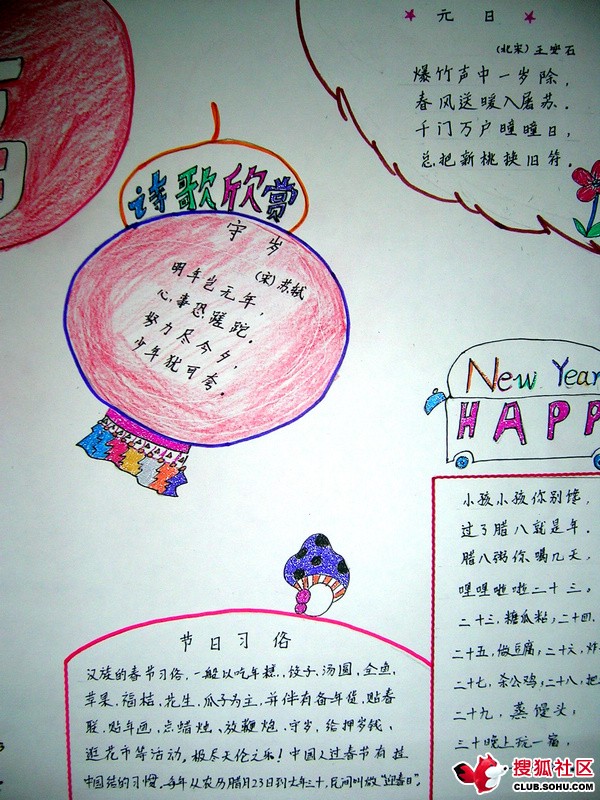 元日
(北宋)王安石
爆竹声中一岁除,
春风送暖入屠苏.
千门万户瞳瞳日,
总把新桃换旧符.
诗歌欣赏
守岁
(宋)苏轼
明年岂无年,
心事恐蹉跎.
努力尽今夕,
少年犹可夸.
New Year
HAPP
小孩小孩你别馋,
过了腊八就是年.
腊八粥你喝几天,
哩哩啦啦二十三。
二十三,糖瓜粘;二十四,
二十五,做豆腐;二十六,炸
二十七,杀公鸡;二十八,把
二十九,蒸馒头,
三十晚上玩一宿,
节日习俗
汉族的春节习俗,一般以吃年糕、饺子、汤圆、全鱼、
苹果、福桔、花生、瓜子为主,并伴有备年货,贴春
联、贴年画、点蜡烛、放鞭炮、守岁、给押岁钱、
逛花市等活动。极尽天伦之乐!中国人过春节有挂
中国结的习惯.每年从农历腊月23日到大年三十,民间叫做"迎春日".
搜狐社区
CLUB.SOHU.COM